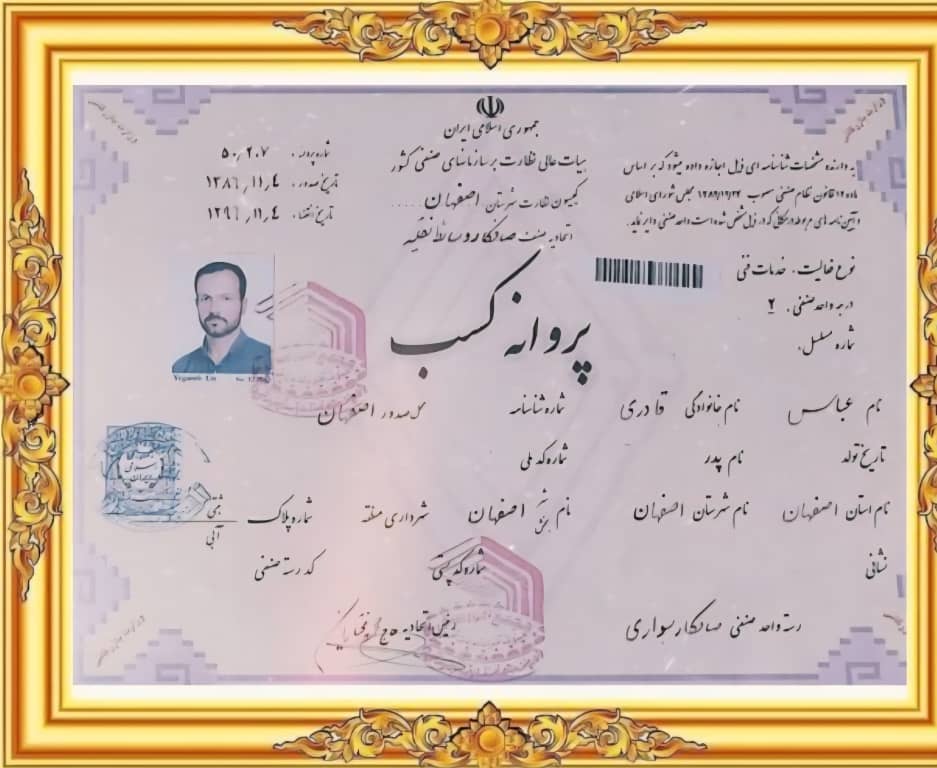 جمهوری اسلامی ایران
هیات عالی نظارت بر سازمانهای صنفی کشور
کمیسیون نظارت شهرستان اصفهان
اتحادیه صنف صافکار وسائط نقلیه
شماره پروانه : ۵۰۲۰۷
تاریخ صدور : ۱۳۸۶,۱۱,۴
تاریخ انقضاء : ۱۳۹۱,۱۱,۴
به دارنده مشخصات شناسنامه ای ذیل اجازه داده میشود که بر اساس
ماده ۱۲ قانون نظام صنفی مصوب ۱۳۸۲/۱۲/۲۴ مجلس شورای اسلامی
و آیین نامه های مربوطه در مکانی که در ذیل مشخص شده است واحد صنفی دایر نماید.
نوع فعالیت : خدمات فنی
درجه واحد صنفی : ۲
شماره مسلسل :
پروانه کسب
نام عباس نام خانوادگی قادری شماره شناسنامه محل صدور اصفهان
تاریخ تولد نام پدر شماره کد ملی
نام استان اصفهان نام شهرستان اصفهان نام شهر بخش اصفهان شهرداری منطقه شماره پلاک ثبتی آبی
نشانی شماره کد پستی کد رسته صنفی
رسته واحد صنفی صافکار سواری رئیس اتحادیه